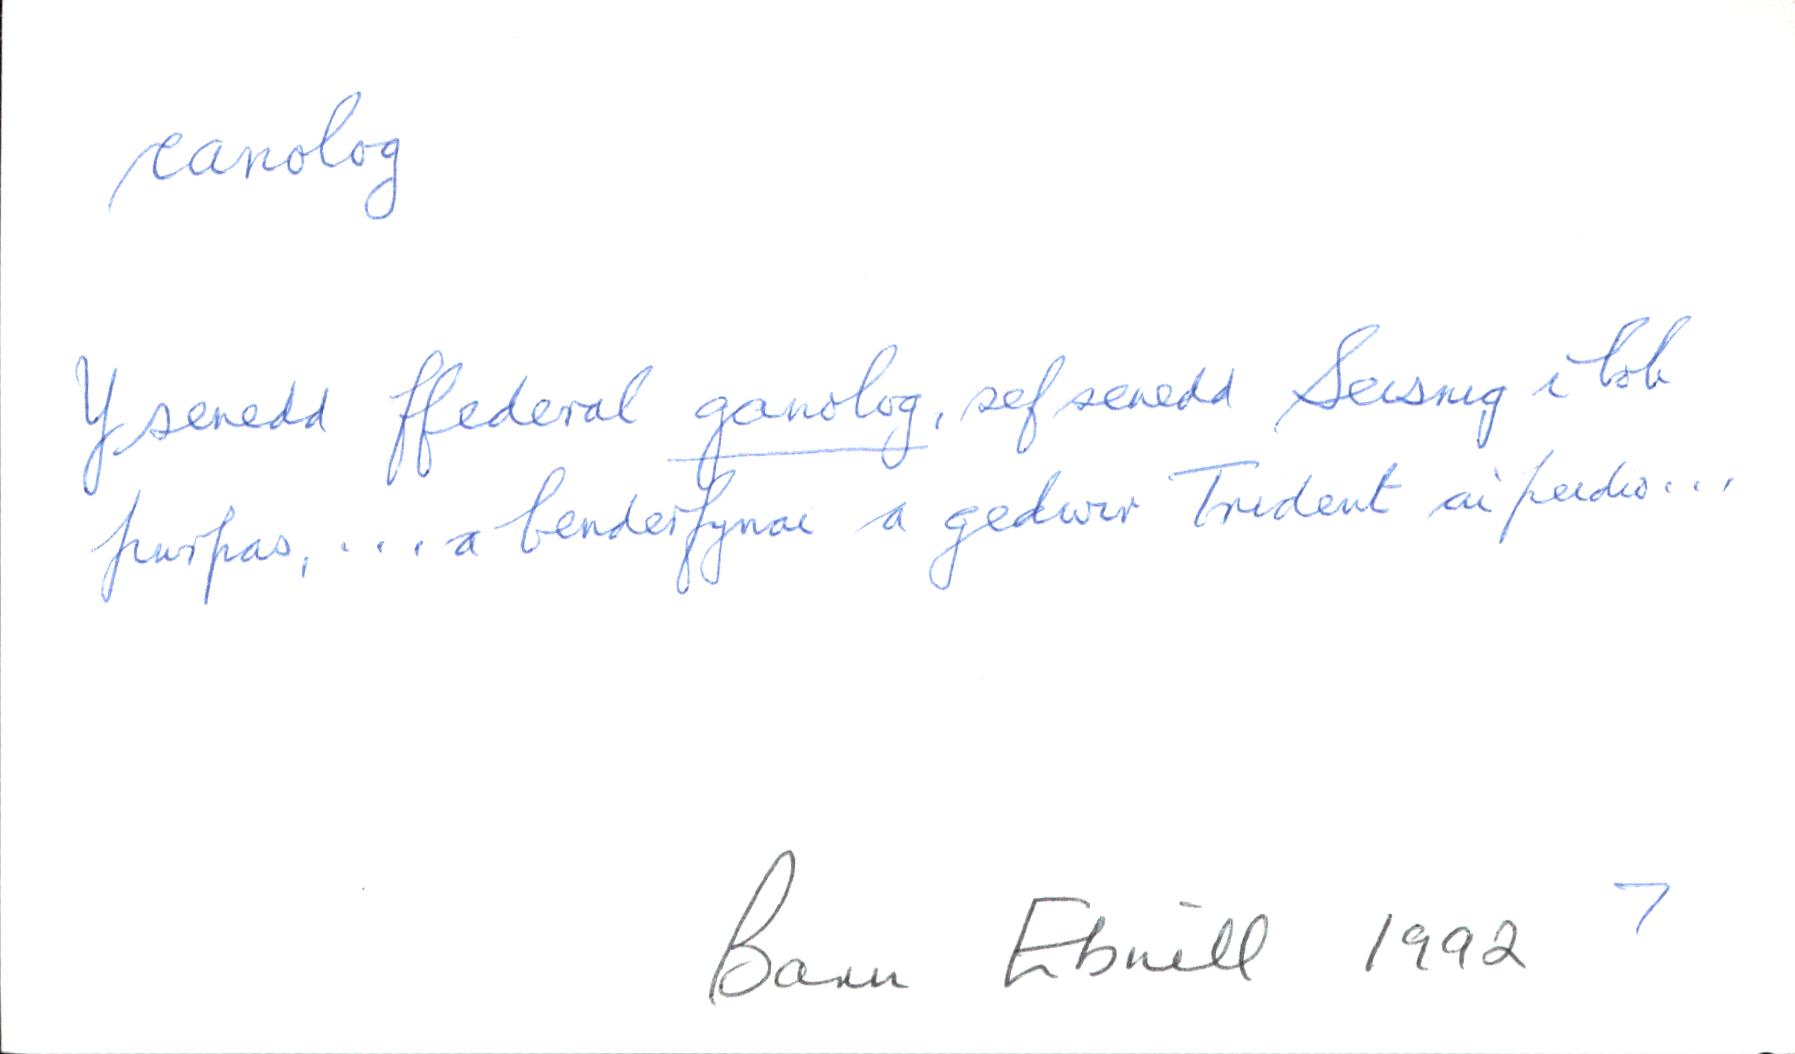 canolog
Y senedd ffederal ganolog, sef senedd Seisnig i bob
pwrpas, ... a benderfynai a gedwir Trident ai peidio...
Barn Ebrill 1992 7